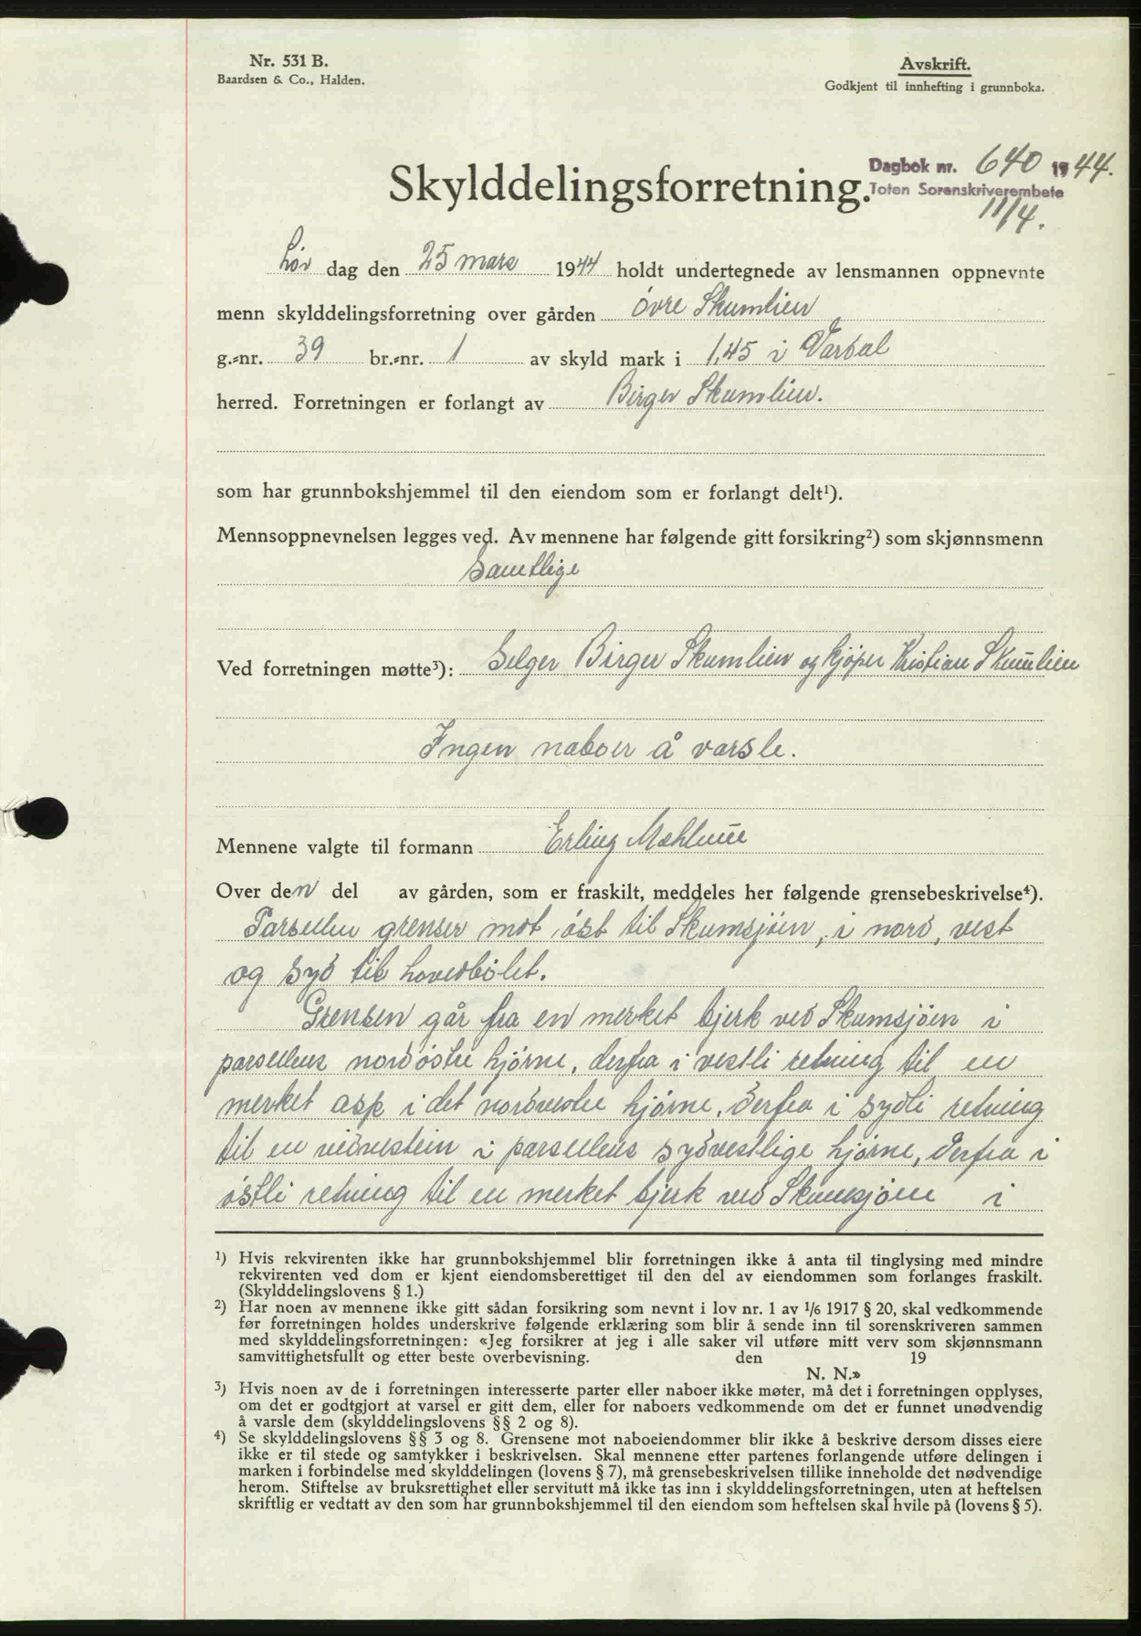 Nr. 531 B.
Baardsen & Co., Halden.
Avskrift.
Godkjent til innhefting i grunnboka.
Skylddelingsforretning.
Dagbok nr. 640 1944.
Toten Sorenskriverembete
11/4.
Lør dag den 25 mars 1944 holdt undertegnede av lensmannen oppnevnte
menn skylddelingsforretning over gården Övre Skumlien
g.-nr. 39 br.-nr. 1 av skyld mark i 1,45 i Vardal
herred. Forretningen er forlangt av Birger Skumlien.
som har grunnbokshjemmel til den eiendom som er forlangt delt¹).
Mennsoppnevnelsen legges ved. Av mennene har følgende gitt forsikring²) som skjønnsmenn
Samtlige
Ved forretningen møtte³): Selger Birger Skumlien og kjøper Kristian Skumlien
Ingen naboer å varsle.
Mennene valgte til formann Erling Mæhlum
Over den del av gården, som er fraskilt, meddeles her følgende grensebeskrivelse⁴).
Parsellen grenser mot öst til Skumsjöen, i nord, vest
og syd til hovedbölet.
Grensen går fra en merket bjerk ved Skumsjöen i
parsellens nordöstre hjörne, derfra i vestli retning til en
merket asp i det nordvestre hjörne, derfra i sydli retning
til en nedvestein i parsellens sydvestlige hjörne, derfra i
östli retning til en merket bjerk ved Skumsjöen i
¹) Hvis rekvirenten ikke har grunnbokshjemmel blir forretningen ikke å anta til tinglysing med mindre
rekvirenten ved dom er kjent eiendomsberettiget til den del av eiendommen som forlanges fraskilt.
(Skylddelingslovens § 1.)
²) Har noen av mennene ikke gitt sådan forsikring som nevnt i lov nr. 1 av 1/6 1917 § 20, skal vedkommende
før forretningen holdes underskrive følgende erklæring som blir å sende inn til sorenskriveren sammen
med skylddelingsforretningen: «Jeg forsikrer at jeg i alle saker vil utføre mitt verv som skjønnsmann
samvittighetsfullt og etter beste overbevisning. den 19
N. N.»
³) Hvis noen av de i forretningen interesserte parter eller naboer ikke møter, må det i forretningen opplyses,
om det er godtgjort at varsel er gitt dem, eller for naboers vedkommende om det er funnet unødvendig
å varsle dem (skylddelingslovens §§ 2 og 8).
⁴) Se skylddelingslovens §§ 3 og 8. Grensene mot naboeiendommer blir ikke å beskrive dersom disses eiere
ikke er til stede og samtykker i beskrivelsen. Skal mennene etter partenes forlangende utføre delingen i
marken i forbindelse med skylddelingen (lovens § 7), må grensebeskrivelsen tillike inneholde det nødvendige
herom. Stiftelse av bruksrettighet eller servitutt må ikke tas inn i skylddelingsforretningen, uten at heftelsen
skriftlig er vedtatt av den som har grunnbokshjemmel til den eiendom som heftelsen skal hvile på (lovens § 5).